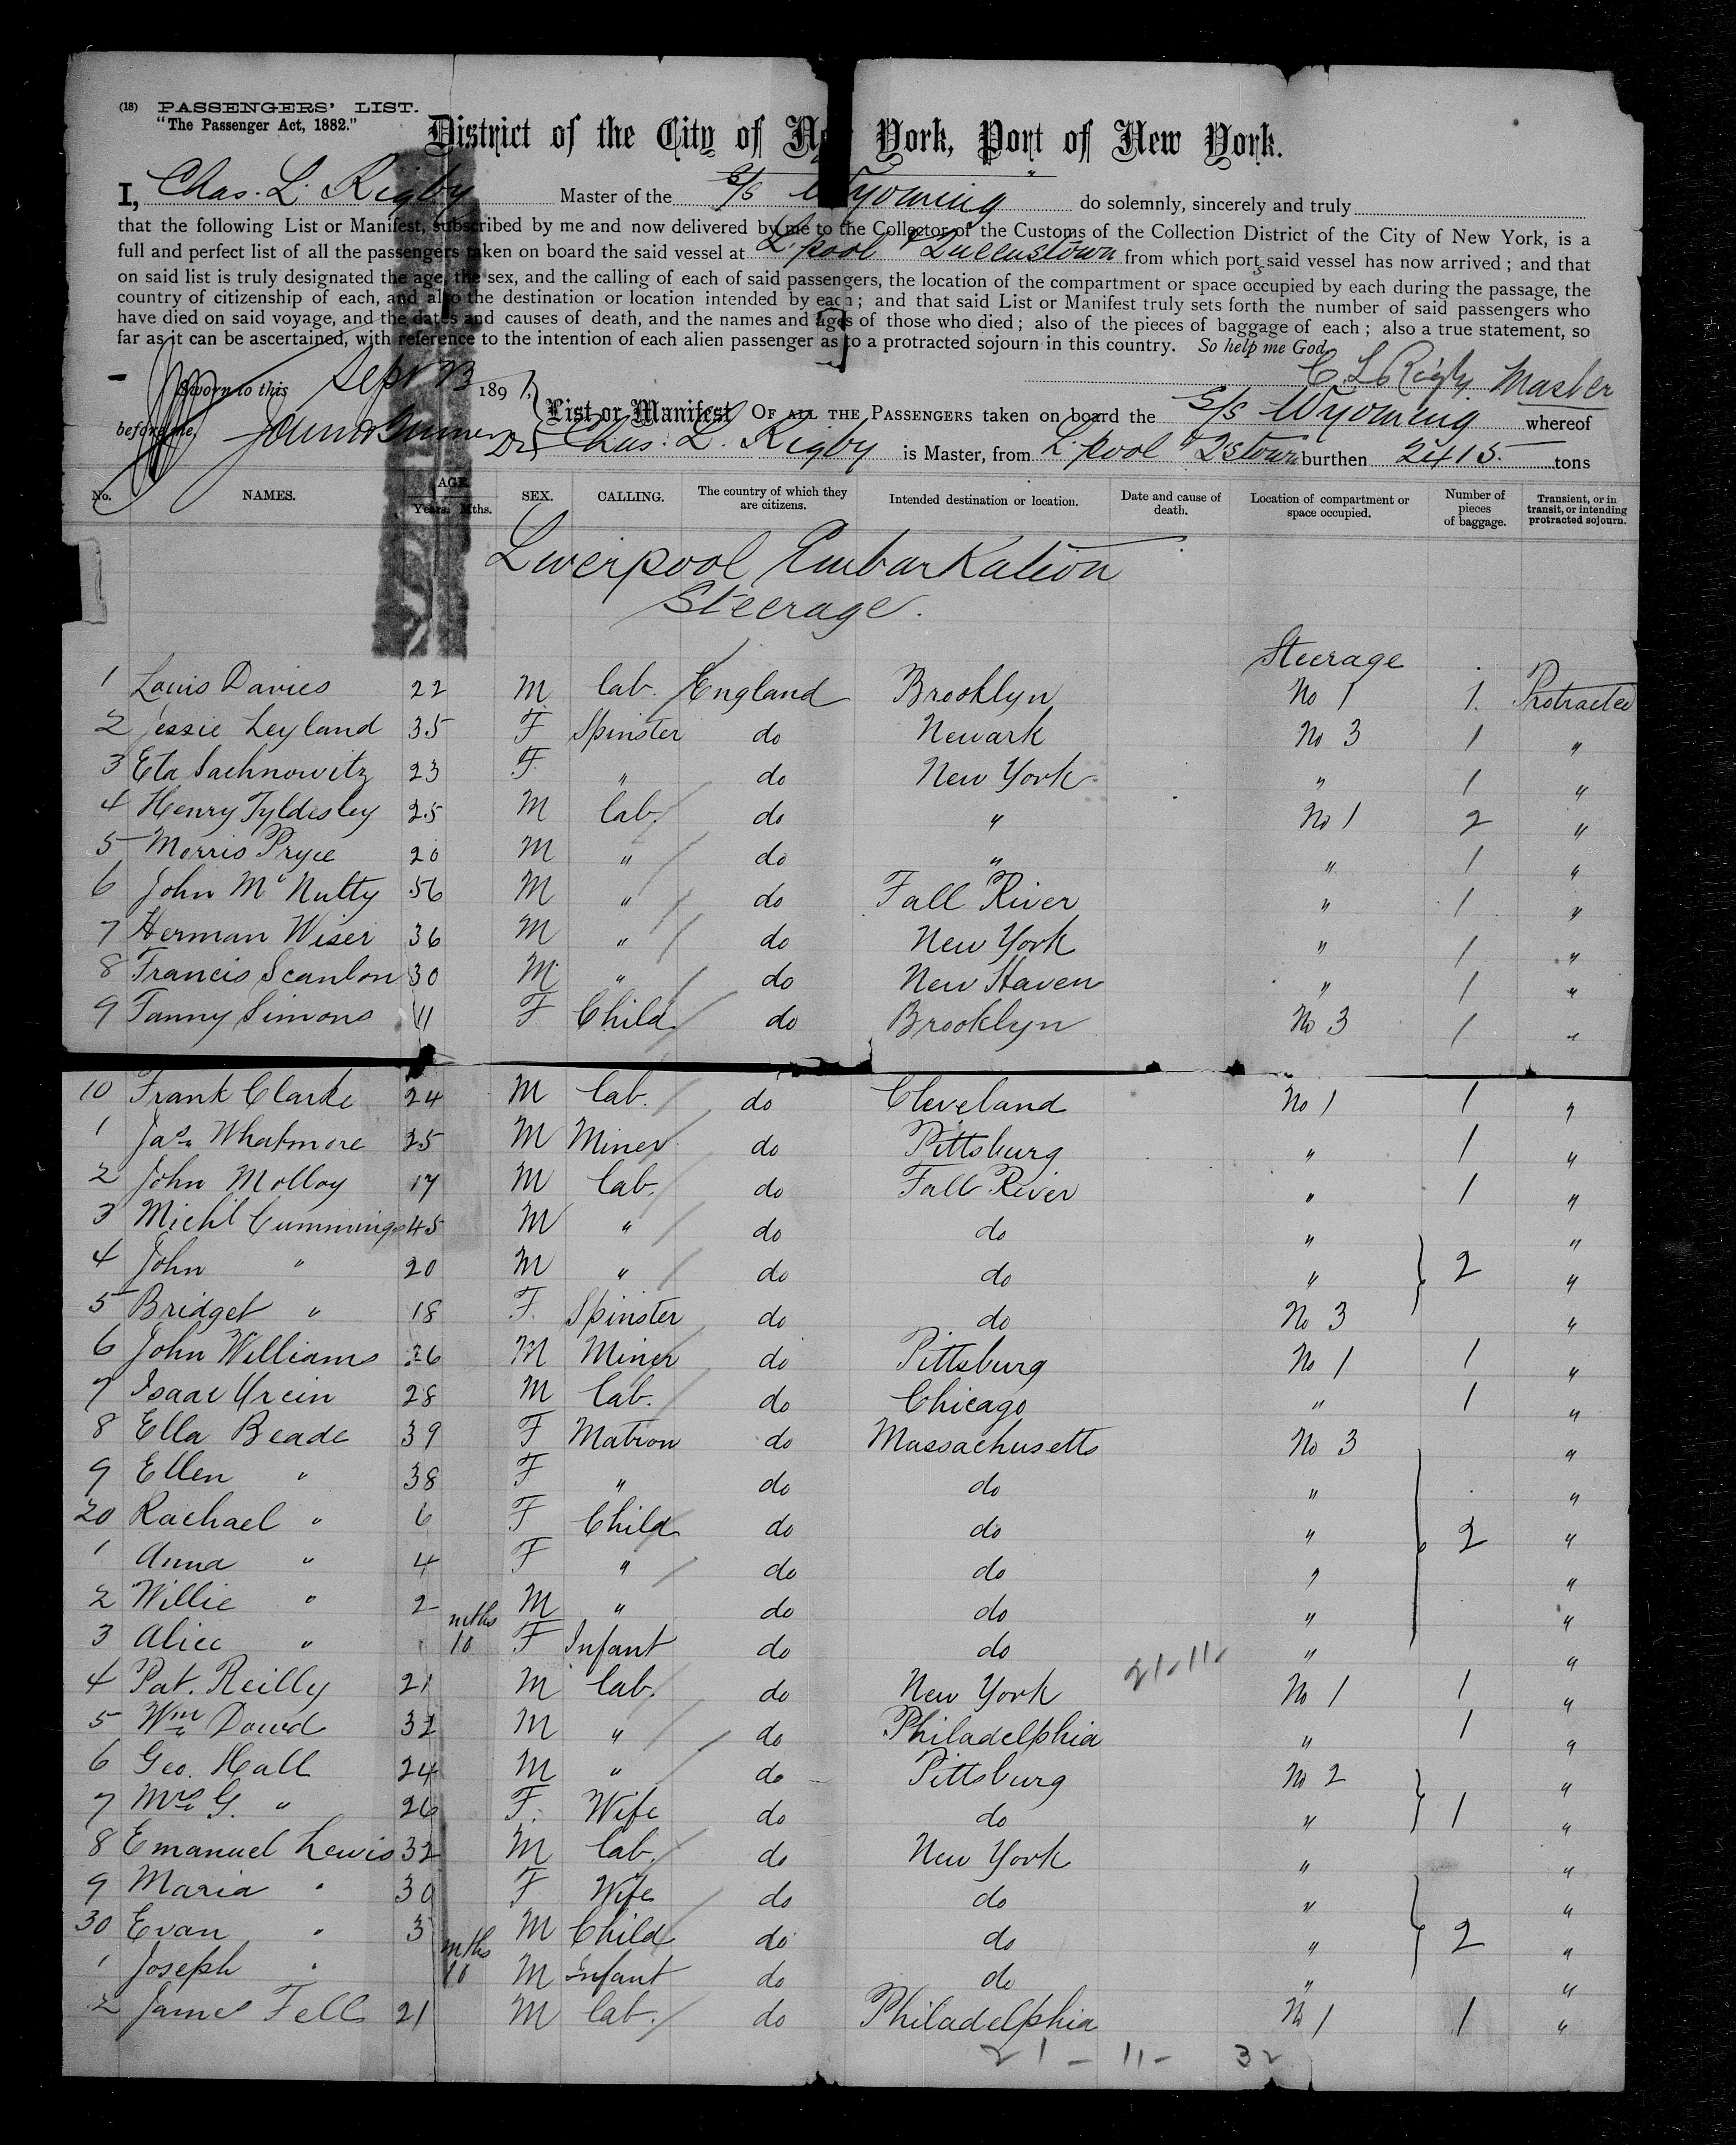 (18) PASSENGERS' LIST.
"The Passenger Act, 1882."
District of the City of New York, Port of New York.
I, Chas. L. Rigby Master of the S/S Wyoming do solemnly, sincerely and truly
that the following List or Manifest, subscribed by me and now delivered by me to the Collector of the Customs of the Collection District of the City of New York, is a
full and perfect list of all the passengers taken on board the said vessel at L'pool & Queenstown from which ports said vessel has now arrived; and that
on said list is truly designated the age, the sex, and the calling of each of said passengers, the location of the compartment or space occupied by each during the passage, the
country of citizenship of each, and also the destination or location intended by each; and that said List or Manifest truly sets forth the number of said passengers who
have died on said voyage, and the dates and causes of death, and the names and ages of those who died; also of the pieces of baggage of each; also a true statement, so
far as it can be ascertained, with reference to the intention of each alien passenger as to a protracted sojourn in this country. So help me God.
C L Rigby. Master
Sworn to this Sept 23 1891,
before me,
List or Manifest OF ALL THE PASSENGERS taken on board the S/S Wyoming whereof
Chas. L. Rigby is Master, from L'pool & Q'stown burthen 2415 tons
No. NAMES. AGE. Years. Mths. SEX. CALLING. The country of which they are citizens. Intended destination or location. Date and cause of death. Location of compartment or space occupied. Number of pieces of baggage. Transient, or in transit, or intending protracted sojourn.
Liverpool Embarkation
Steerage.
Steerage
1 Louis Davies 22 M lab. England Brooklyn No 1 1. Protracted
2 Jessie Leyland 35 F Spinster do Newark No 3 1 "
3 Eta Sachnowitz 23 F " do New York " 1 "
4 Henry Tyldesley 25 M lab. do " No 1 2 "
5 Morris Pryce 20 M " do " " 1 "
6 John McNulty 56 M " do Fall River " 1 "
7 Herman Wiser 36 M " do New York " 1 "
8 Francis Scanlon 30 M " do New Haven " 1 "
9 Fanny Simons 11 F Child do Brooklyn No 3 1 "
10 Frank Clarke 24 M lab. do Cleveland No 1 1 "
1 Jas. Whatmore 25 M Miner do Pittsburg " 1 "
2 John Molloy 17 M lab. do Fall River " 1 "
3 Michl Cummings 45 M " do do " "
4 John " 20 M " do do " 2 "
5 Bridget " 18 F. Spinster do do No 3 "
6 John Williams 26 M Miner do Pittsburg No 1 1 "
7 Isaac 28 M lab. do Chicago " 1 "
8 Ella Beade 39 F Matron do Massachusetts No 3 "
9 Ellen " 38 F " do do " "
20 Rachael " 6 F Child do do " 2 "
1 Anna " 4 F " do do " "
2 Willie " 2 M " do do " "
3 Alice " mths 10 F Infant do do " "
21-11-
4 Pat. Reilly 21 M lab. do New York No 1 1 "
5 Wm Dowd 32 M " do Philadelphia " 1 "
6 Geo. Hall 24 M " do Pittsburg No 2 "
7 Mrs G. " 26 F. Wife do do " 1 "
8 Emanuel Lewis 32 M lab. do New York " "
9 Maria " 30 F Wife do do " "
30 Evan " 3 M Child do do " 2 "
1 Joseph " mths 10 M Infant do do " "
2 James Fell 21 M lab. do Philadelphia No 1 1 "
21 - 11 - 32